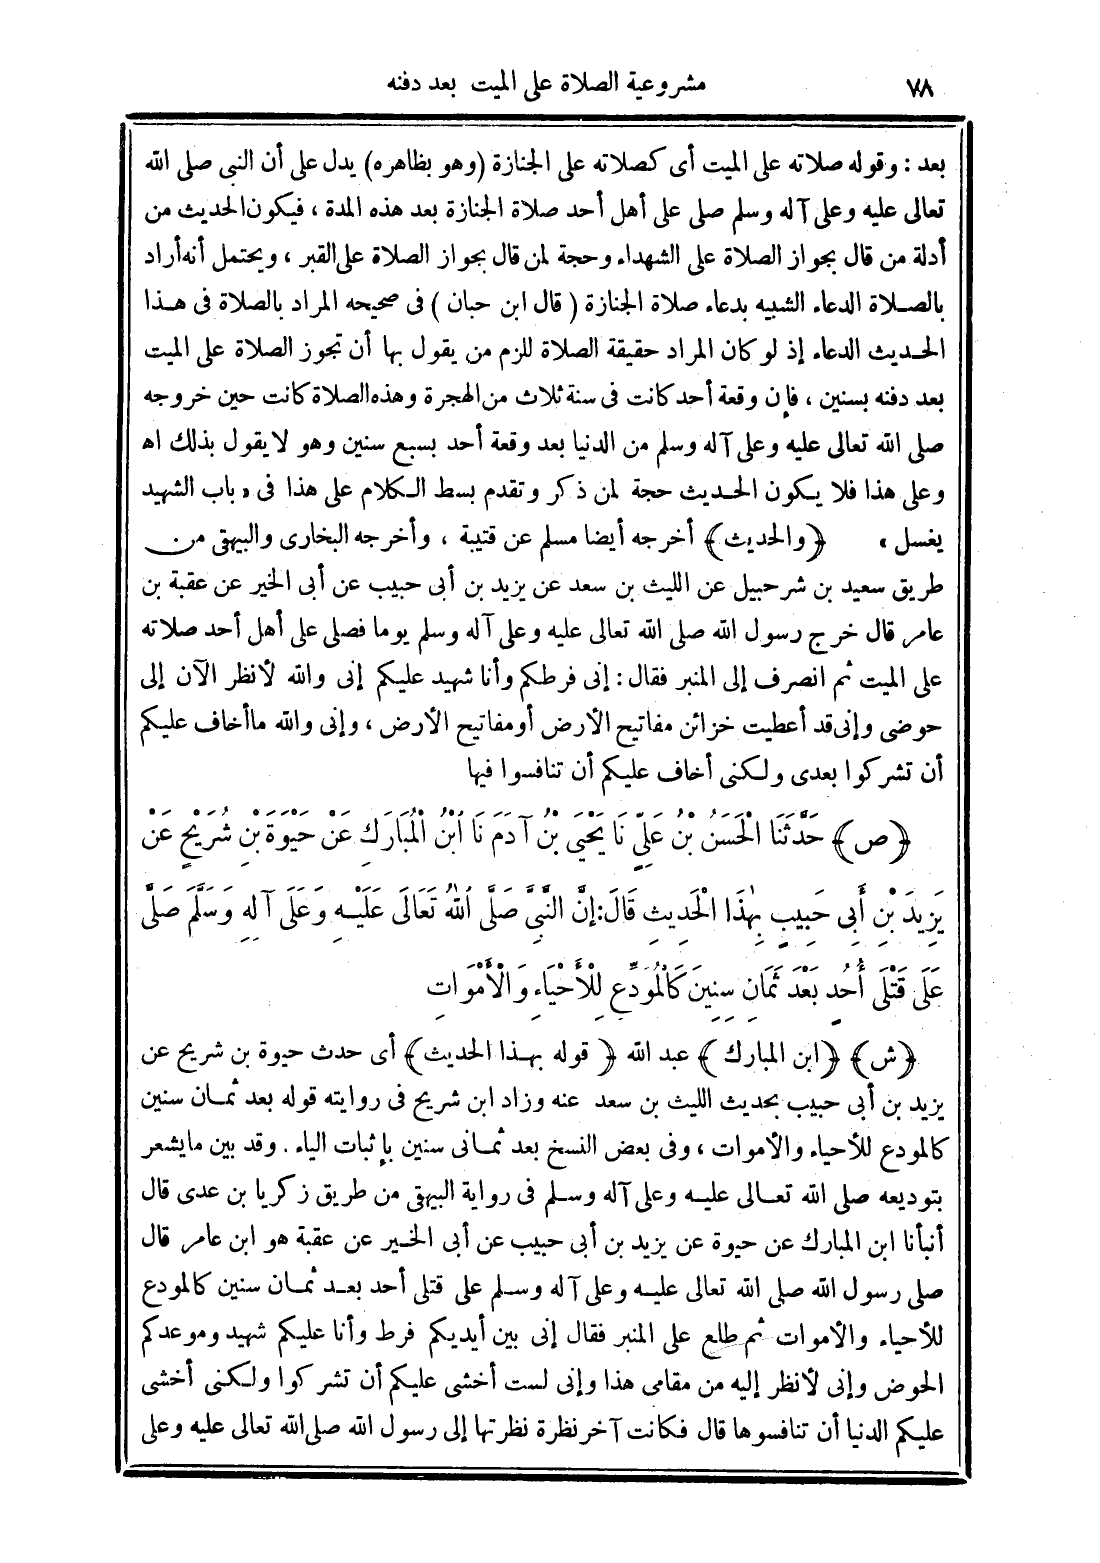 ٧٨
مشروعية الصلاة على الميت بعد دفنه
بعد : وقوله صلاته على الميت أى كصلاته على الجنازة (وهو بظاهره) يدل على أن النبى صلى الله
تعالى عليه وعلى آله وسلم صلى على أهل أحد صلاة الجنازة بعد هذه المدة ، فيكون الحديث من
أدلة من قال بجواز الصلاة على الشهداء وحجة لمن قال بجواز الصلاة على القبر ، ويحتمل أنه أراد
بالصلاة الدعاء الشبيه بدعاء صلاة الجنازة ( قال ابن حبان ) فى صحيحه المراد بالصلاة فى هذا
الحديث الدعاء إذ لو كان المراد حقيقة الصلاة للزم من يقول بها أن تجوز الصلاة على الميت
بعد دفنه بسنين ، فإن وقعة أحد كانت فى سنة ثلاث من الهجرة وهذه الصلاة كانت حين خروجه
صلى الله تعالى عليه وعلى آله وسلم من الدنيا بعد وقعة أحد بسبع سنين وهو لا يقول بذلك اه
وعلى هذا فلا يكون الحديث حجة لمن ذكر وتقدم بسط الكلام على هذا فى « باب الشهيد
يغسل » ﴿والحديث﴾ أخرجه أيضا مسلم عن قتيبة ، وأخرجه البخارى والبيهقى من
طريق سعيد بن شرحبيل عن الليث بن سعد عن يزيد بن أبى حبيب عن أبى الخير عن عقبة بن
عامر قال خرج رسول الله صلى الله تعالى عليه وعلى آله وسلم يوما فصلى على أهل أحد صلاته
على الميت ثم انصرف إلى المنبر فقال : إنى فرطكم وأنا شهيد عليكم إنى والله لأنظر الآن إلى
حوضى وإنى قد أعطيت خزائن مفاتيح الأرض أو مفاتيح الأرض ، وإنى والله ما أخاف عليكم
أن تشركوا بعدى ولكنى أخاف عليكم أن تنافسوا فيها
﴿ص﴾ حَدَّثَنَا الْحَسَنُ بْنُ عَلِيٍّ نَا يَحْيَى بْنُ آدَمَ نَا ابْنُ الْمُبَارَكِ عَنْ حَيْوَةَ بْنِ شُرَيْحٍ عَنْ
يَزِيدَ بْنِ أَبِى حَبِيبٍ بِهٰذَا الْحَدِيثِ قَالَ:إِنَّ النَّبِيَّ صَلَّى اللهُ تَعَالَى عَلَيْهِ وَعَلَى آلِهِ وَسَلَّمَ صَلَّى
عَلَى قَتْلَى أُحُدٍ بَعْدَ ثَمَانِ سِنِينَ كَالْمُوَدِّعِ لِلْأَحْيَاءِ وَالْأَمْوَاتِ
﴿ش﴾ ﴿ابن المبارك﴾ عبد الله ﴿قوله بهذا الحديث﴾ أى حدث حيوة بن شريح عن
يزيد بن أبى حبيب بحديث الليث بن سعد عنه وزاد ابن شريح فى روايته قوله بعد ثمان سنين
كالمودع للأحياء والأموات ، وفى بعض النسخ بعد ثمانى سنين بإثبات الياء . وقد بين ما يشعر
بتوديعه صلى الله تعالى عليه وعلى آله وسلم فى رواية البيهقى من طريق زكريا بن عدى قال
أنبأنا ابن المبارك عن حيوة عن يزيد بن أبى حبيب عن أبى الخير عن عقبة هو ابن عامر قال
صلى رسول الله صلى الله تعالى عليه وعلى آله وسلم على قتلى أحد بعد ثمان سنين كالمودع
للأحياء والأموات ثم طلع على المنبر فقال إنى بين أيديكم فرط وأنا عليكم شهيد وموعدكم
الحوض وإنى لأنظر إليه من مقامى هذا وإنى لست أخشى عليكم أن تشركوا ولكنى أخشى
عليكم الدنيا أن تنافسوها قال فكانت آخر نظرة نظرتها إلى رسول الله صلى الله تعالى عليه وعلى